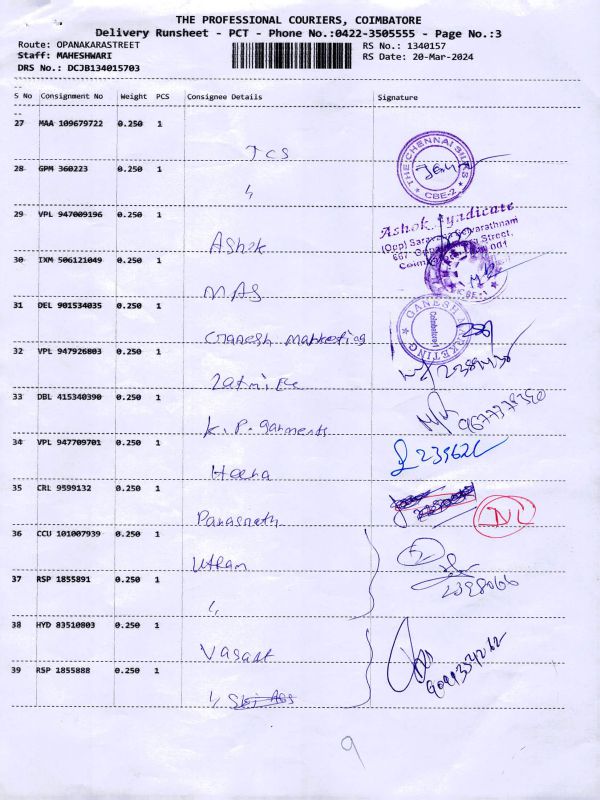 THE PROFESSIONAL COURIERS, COIMBATORE
Delivery Runsheet - PCT - Phone No.:0422-3505555 - Page No.:3
Route: OPANAKARASTREET RS No.: 1340157
Staff: MAHESHWARI RS Date: 20-Mar-2024
DRS No.: DCJB134015703
S No Consignment No Weight PCS Consignee Details Signature
27 MAA 109679722 0.250 1
TCS
THE CHENNAI SILKS
CBE-2
28 GPM 360223 0.250 1
29 VPL 947009196 0.250 1
Ashok
Ashok Syndicate
(Opp) Saravana Selvarathnam
30 IXM 506121049 0.250 1
MAS
31 DEL 901534035 0.250 1
Ganesh Marketing
GANESH MARKETING
Coimbatore
32 VPL 947926803 0.250 1
33 DBL 415340390 0.250 1
K. P. garments
34 VPL 947709701 0.250 1
Heena
35 CRL 9599132 0.250 1
Parasnath
NL
36 CCU 101007939 0.250 1
Uttam
2
37 RSP 1855891 0.250 1
2398066
38 HYD 83510803 0.250 1
Vasant
39 RSP 1855888 0.250 1
9